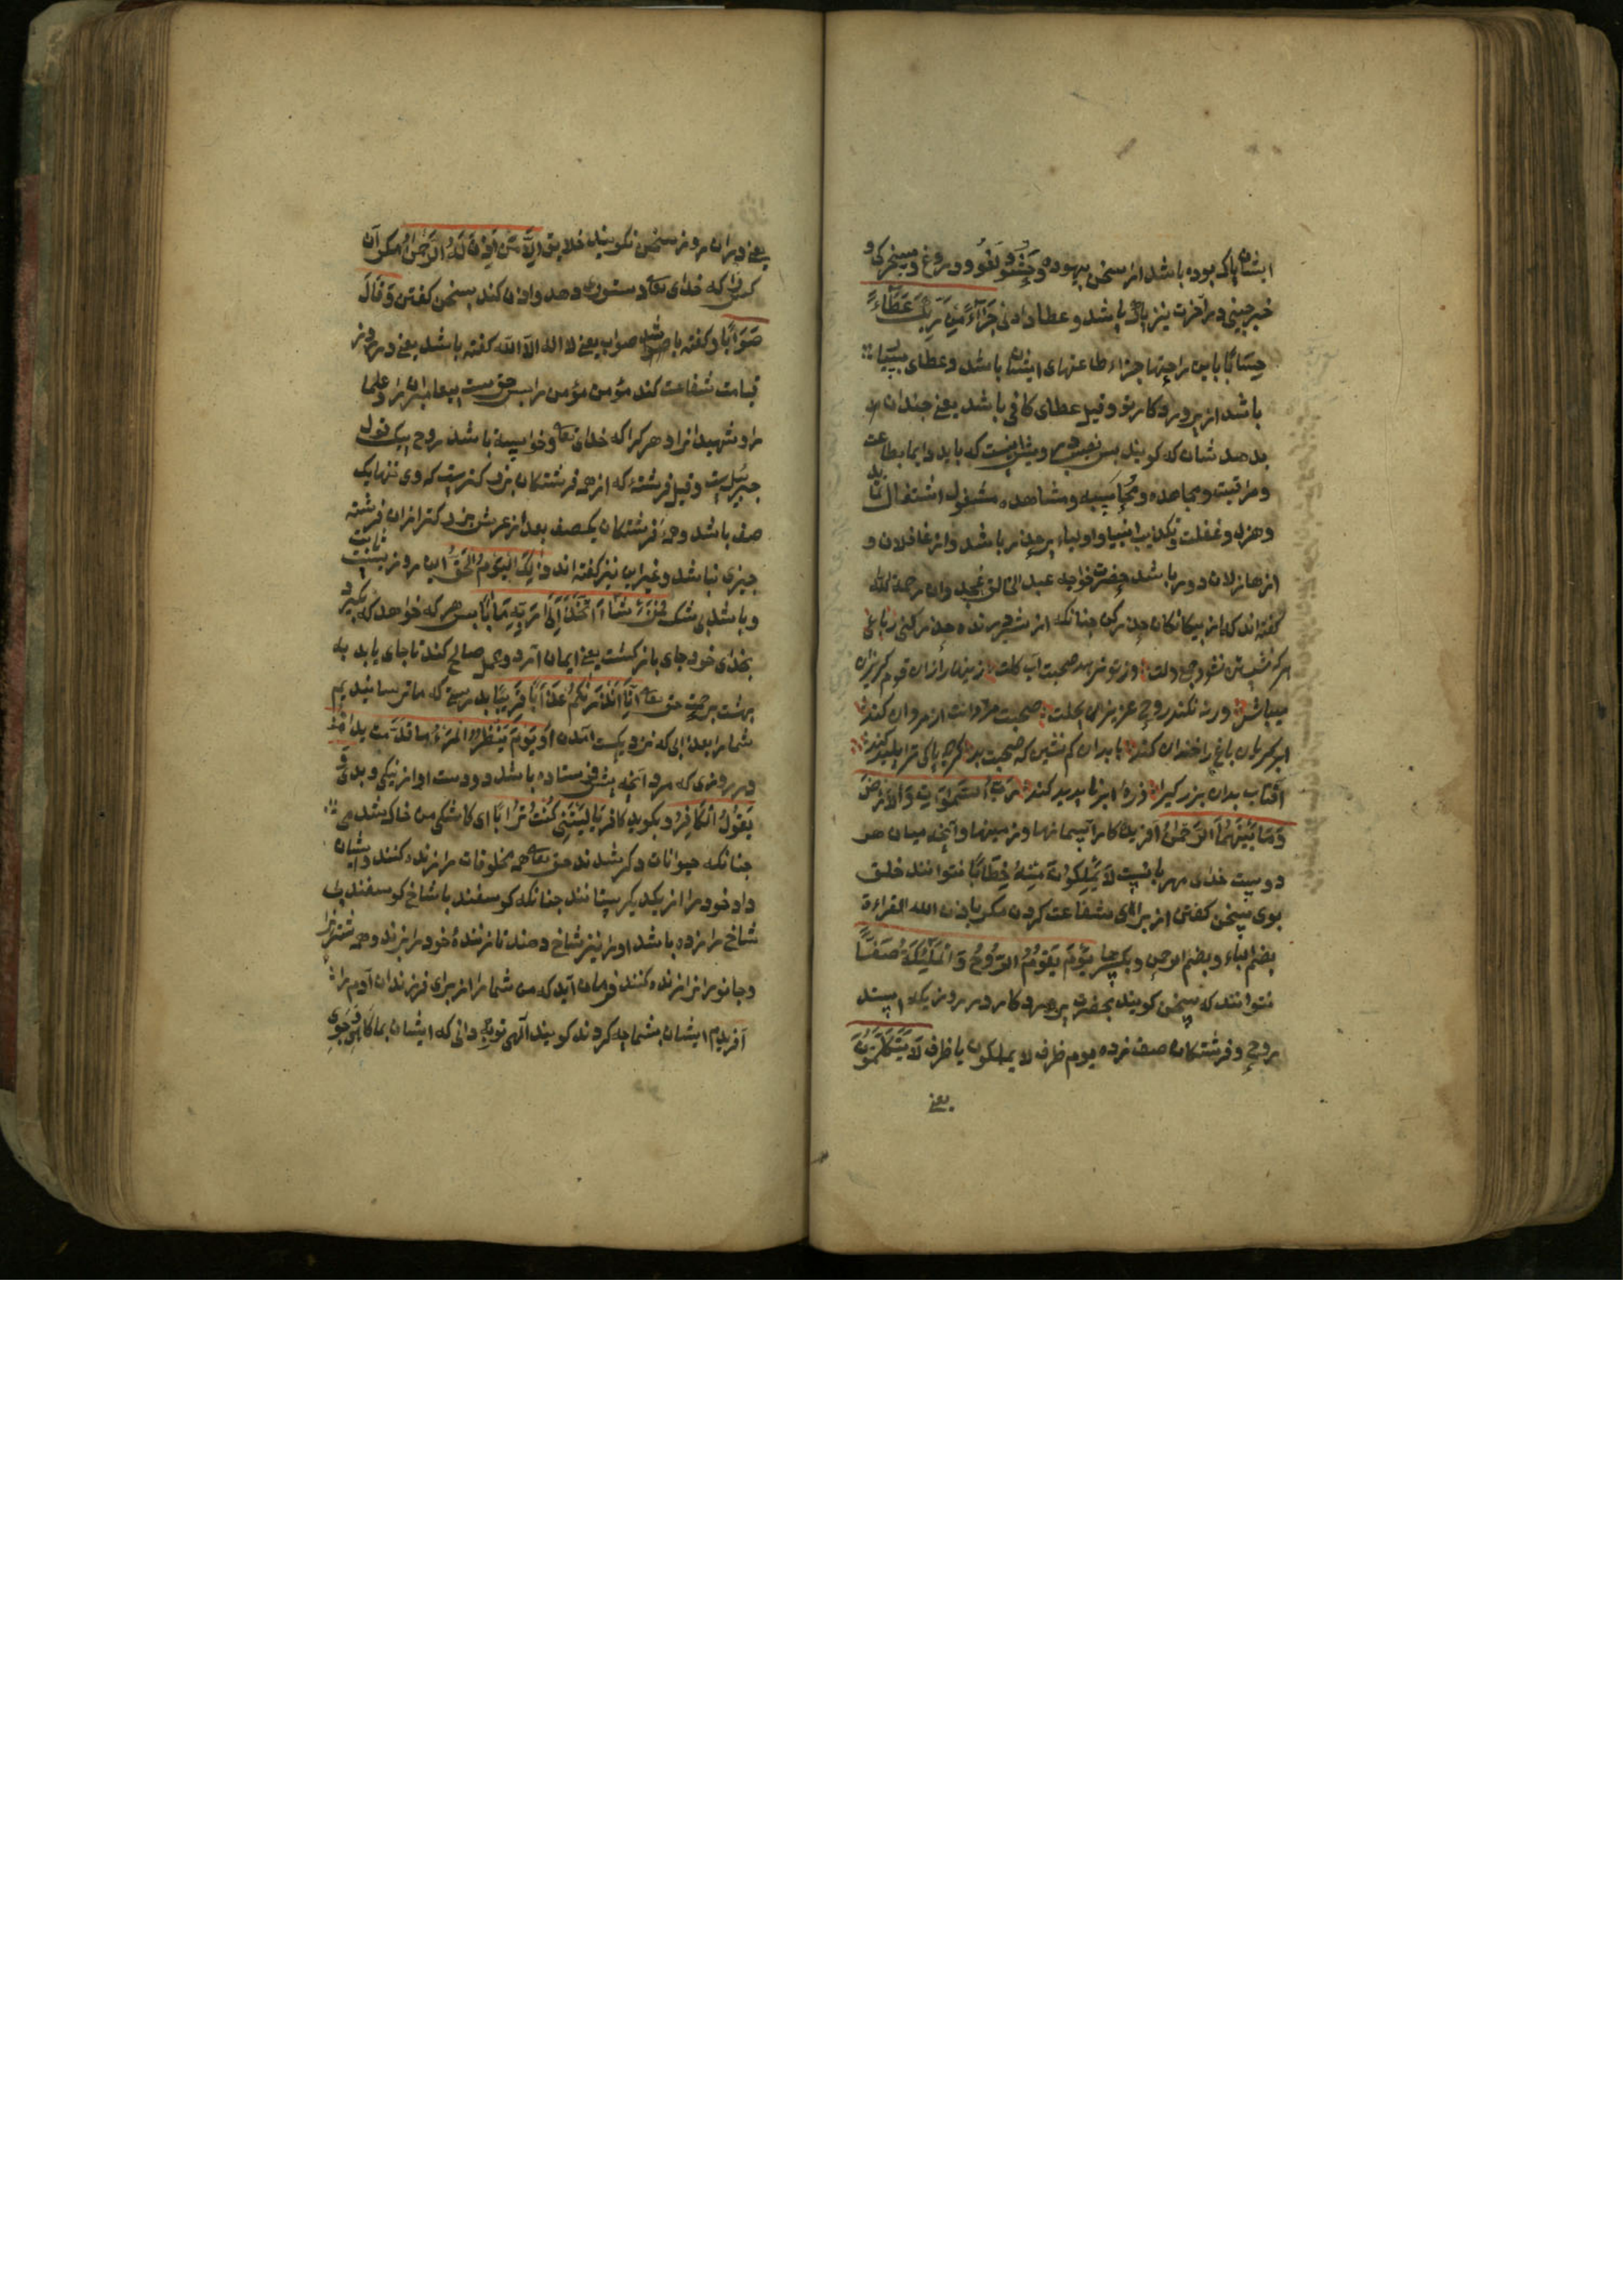 ایشان پاک بوده باشد از سخن بیهوده و لغو و دروغ و مسخرکی و
خبرچینی در آخرت نیز پاک باشد و عطا دادنی جَزَاءً مِنْ رَبِّكَ عَطَاءً
حِسَابًا باین راحتها جزاء طاعتهای ایشان باشد و عطای بسیار
باشد از پروردکار تو و قیل عطای کافی باشد یعنی جندان
بدهد شان که کویند بس بس که باید دایما بطاعت
و مراقبت و مجاهده و محاسبه و مشاهده مشغول اشتغال نماید
و هزل و غفلت و تکذیب انبیا و اولیاء بر حذر باشد و از غافلان و
از هازلان دور باشد حضرت خواجه عبد الخالق غجدوانی رحمه الله
کفته اند که از بیکانکان حذر کن جنانکه از شیر درنده حذر کنی رباعی
با هر که نشستی و نشد جمع دلت وز تو نرمید صحبت آب و کلت زنهار از آن قوم کریزان
میباش ورنه نکند روح عزیزان بحلت صحبت مردانت از مردان کند
ابر کریان باغ را خندان کند با بدان کم نشین که صحبت بد کرجه پاکی ترا پلید کند
آفتاب بدان بزرکی را ذرهٔ ابر نا پدید کند رَبِّ السَّمَوَاتِ وَالْأَرْضِ
وَمَا بَيْنَهُمَا الرَّحْمٰنُ آفریدکار آسمانها و زمینها و آنجه میان هر
دوست خدای مهربانست لَا يَمْلِكُونَ مِنْهُ خِطَابًا نتوانند خلق
بوی سخن کفتن از برای شفاعت کردن مکر باذن الله القراءة
بضم الباء و بضم الرحمن و بکسرها يَوْمَ يَقُومُ الرُّوحُ وَالْمَلَئِكَةُ صَفًّا
نتوانند که سخن کویند بحضرت پروردکار در روزیکه ایستد
روح و فرشتکان صف زده یوم ظرف لا یملکون یا ظرف لَا يَتَكَلَّمُونَ
یعنی
یعنی در آن روز سخن نکویند خلایق اِلَّا مَنْ اَذِنَ لَهُ الرَّحْمٰنُ مکر آن
کسی را که خدای تعالی دستوری دهد و اذن کند بسخن کفتن وَقَالَ
صَوَابًا و کفته باشد صواب یعنی لا اله الا الله کفته باشد یعنی در روز
قیامت شفاعت کند مؤمن مؤمن را بس حق ست پیغامبران را و علما
را و شهیدانرا و هر کرا که خدای تعالی خواسته باشد روح بیک قول
جبرئیل است و قیل فرشتهٔ که از همه فرشتکان بزرکترست که وی تنها یک
صف باشد و همه فرشتکان یکصف بعد از عرش بزرکتر از آن فرشته
جیزی نباشد و غیر این نیز کفته اند ذٰلِكَ الْيَوْمُ الْحَقُّ این روز ثابت
و باشد بی شک فَمَنْ شَاءَ اتَّخَذَ اِلَى رَبِّهِ مَآبًا بس هر که خواهد که بکیرد
بخدای خود جای باز کشت یعنی ایمان آرد و عمل صالح کند تا جای یابد به
بهشت برحمت حق تعالی اِنَّا اَنْذَرْنَاكُمْ عَذَابًا قَرِيبًا بدرستی که ما ترسانیدیم
شما را بعذابی که نزدیکست آمدن او يَوْمَ يَنْظُرُ الْمَرْءُ مَا قَدَّمَتْ يَدَاهُ
در روزی که مرد آنجه پیش فرستاده باشد دو دست او از نیکی و بدی وَ
يَقُولُ الْكَافِرُ و بکوید کافر يَا لَيْتَنِي كُنْتُ تُرَابًا ای کاشکی من خاک شدمی
جنانکه حیوانات دکر شدند حق تعالی همه مخلوقات را زنده کند و ایشان
داد خود را از یکدیکر بستانند جنانکه کوسفند با شاخ کوسفند بی
شاخ را زده باشد او را نیز شاخ دهند تا زنندهٔ خود را بزند و همه
و جانورانرا زنده کنند فرمان آید که من شما را از برای فرزندان آدم را
آفریدم ایشان بشما جه کردند کویند آلهی تو به دانی که ایشان بما